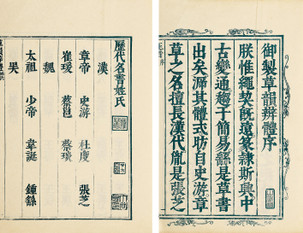 御製草韻辨體序
朕惟繩契旣遠篆隸斯興中
古變通趨于簡易繇是草書
出矣溯其體式昉自史游章
草之名擅長漢代胤是張芝
歷代名書姓氏
漢
章帝 史游 杜度 張芝
崔瑗 蔡邕 蔡琰
魏
太祖 少帝 韋誕 鍾繇
吳